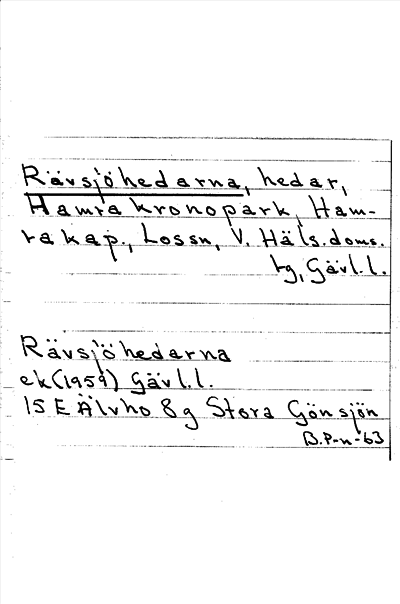 Rävsjöhedarna, hedar,
Hamra kronopark, Ham-
ra kap., Lossn, V. Häls. doms.
tg, Gävl. l.
Rävsjöhedarna
ek (1959) Gävl. l.
15 E Älvho 8 g Stora Gönsjön
B. P-n-63